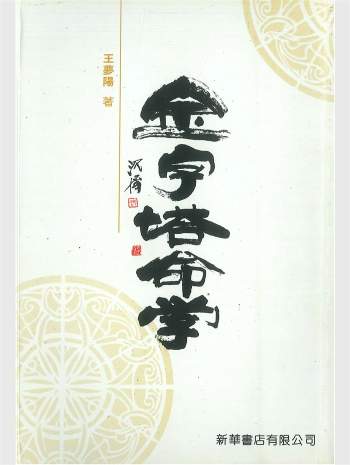 王夢陽 著
金字塔命学
新華書店有限公司